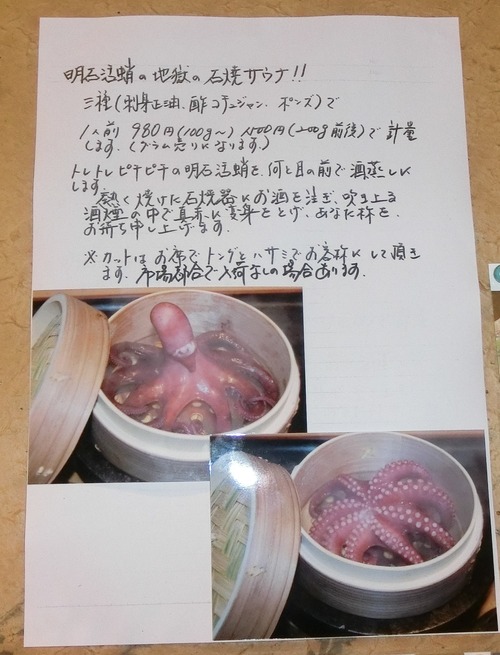 明石活蛸の地獄の石焼サウナ!!
三種(刺身正油、酢コチュジャン、ポンズ)で
1人前 980円(100g〜) 1500円(200g前後)で 計量
します。(グラム売りになります。)
トレトレピチピチの明石活蛸を、何と目の前で酒蒸しに
します。
熱く焼けた石焼器にお酒を注ぎ、吹き上る
酒煙の中で真赤に変身をとげ、あなた様を、
お待ち申し上げます。
※カットはお席でトングとハサミでお客様にして頂き
ます。市場都合で入荷なしの場合あります。